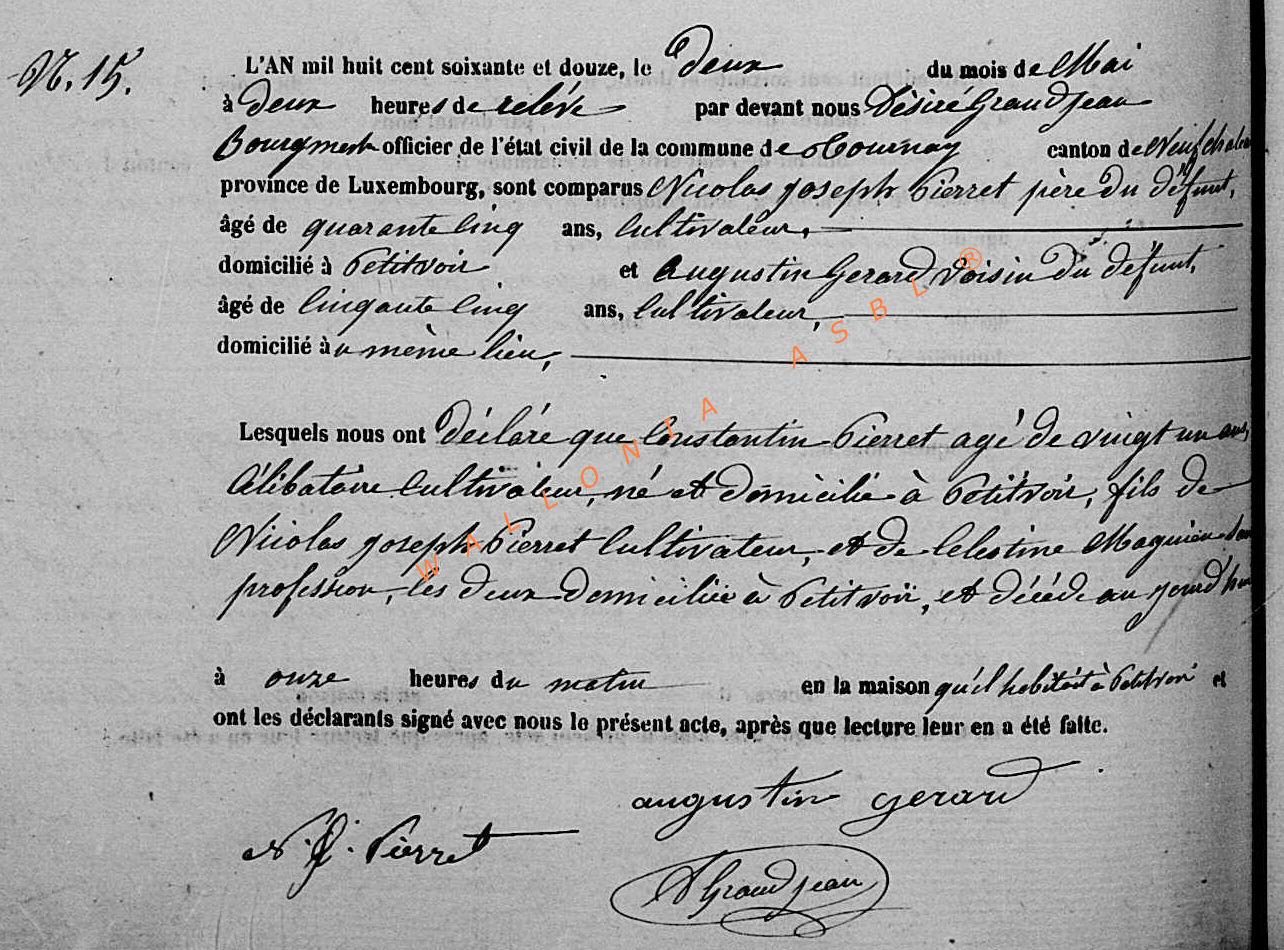 N. 15.
L'AN mil huit cent soixante et douze, le deux du mois de Mai
à deux heures de relévé par devant nous Désiré Grandjean
Bourgmest officier de l'état civil de la commune de Tournay canton de Neufchateau
province de Luxembourg, sont comparus Nicolas joseph Pierret père du défunt,
âgé de quarante cinq ans, cultivateur,
domicilié à Petitvoir et Augustin Gerard Voisin du défunt,
âgé de cinqante cinq ans, cultivateur,
domicilié au même lieu,
Lesquels nous ont déclaré que Constantin Pierret agé de vingt un ans,
Célibataire cultivateur, né et domicilié à Petitvoir, fils de
Nicolas joseph Pierret Cultivateur, et de Celestine Maguien
profession, les deux domiciliée à Petitvoir, et décédé aujourd'hui
à onze heures du matin en la maison qu'il habitait à Petitvoir et
ont les déclarants signé avec nous le présent acte, après que lecture leur en a été faite.
augustin gerard
N. J. Pierret
D Grandjean
WALLONIA ASBL ®